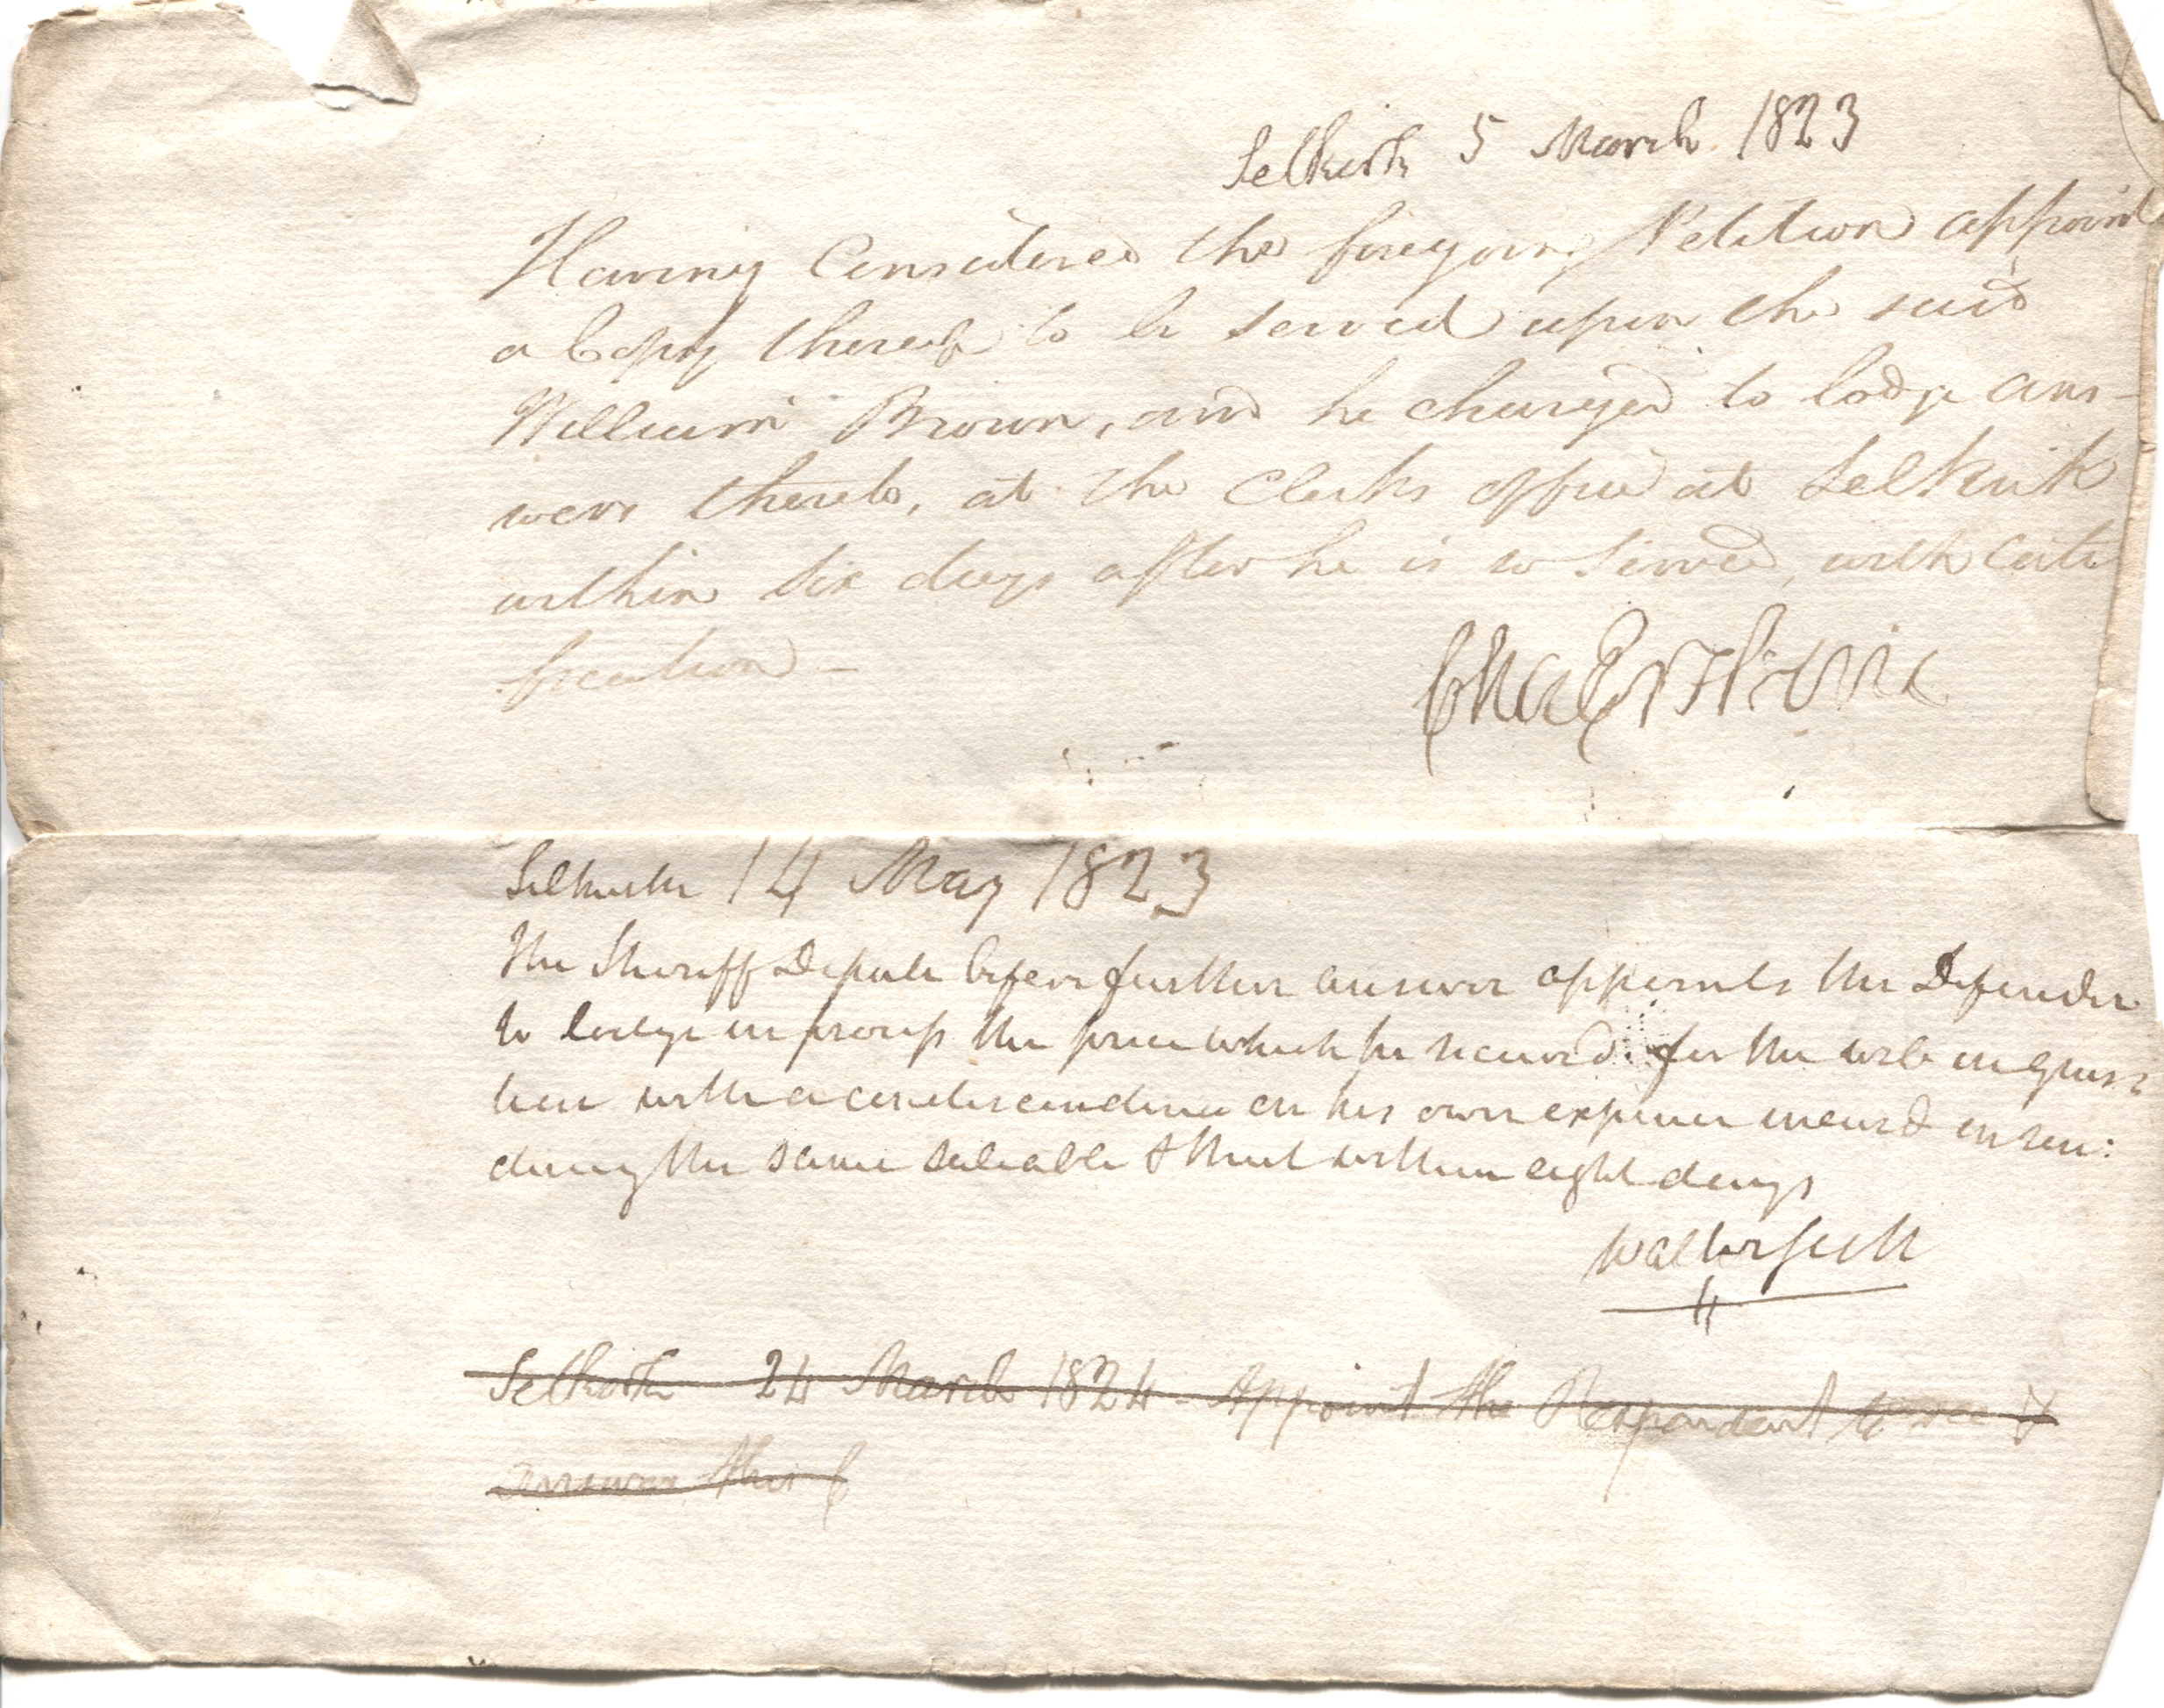 Selkirk 5 March 1823
Having Considered the foregoing Petition appoint
a Copy thereof to be served upon the said
William Brown, and he charged to lodge ans-
wers thereto, at the Clerks office at Selkirk
within six days after he is so served, with certi
fication –
Cha Erskine
Selkirk 14 May 1823
The Sheriff Depute before further answer appoints the Defender
to lodge in process the price which he receivd for the web in ques:
tion with a condescendence on his own expence incurd in ren:
ding the same saleable & that within eight days
Walter Scott
Selkirk 24 March 1824 – Appoint the Respondent to see &
answer this